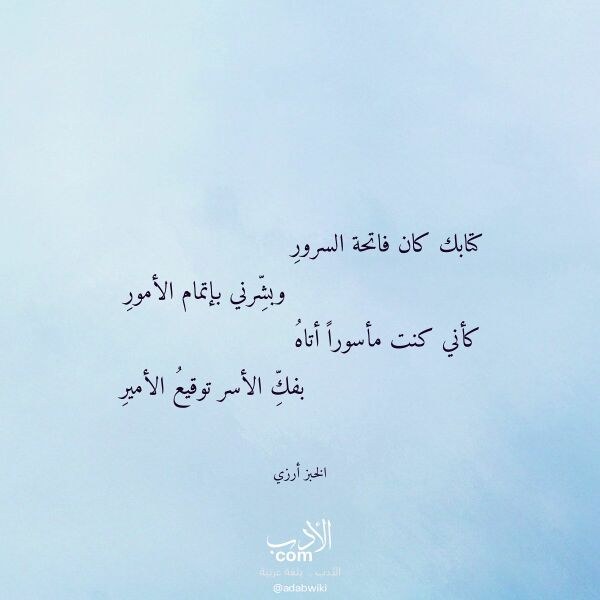 كتابك كان فاتحة السرورِ
وبشِّرني بإتمام الأمورِ
كأني كنت مأسوراً أتاهُ
بفكِّ الأسر توقيعُ الأميرِ
الخبز أرزي
الأدب
com
الأدب .. بلغة عربية
@adabwiki